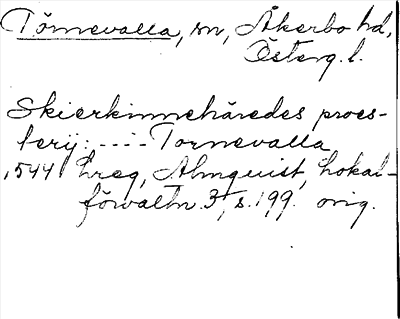 Törnevalla, sn, Åkerbo hd,
Österg. l.
Skierkinnehäredes proes-
terij: --- Tornevalla
1544 hreg, Almquist, Lokal-
förvaltn. 3, s. 199. orig.